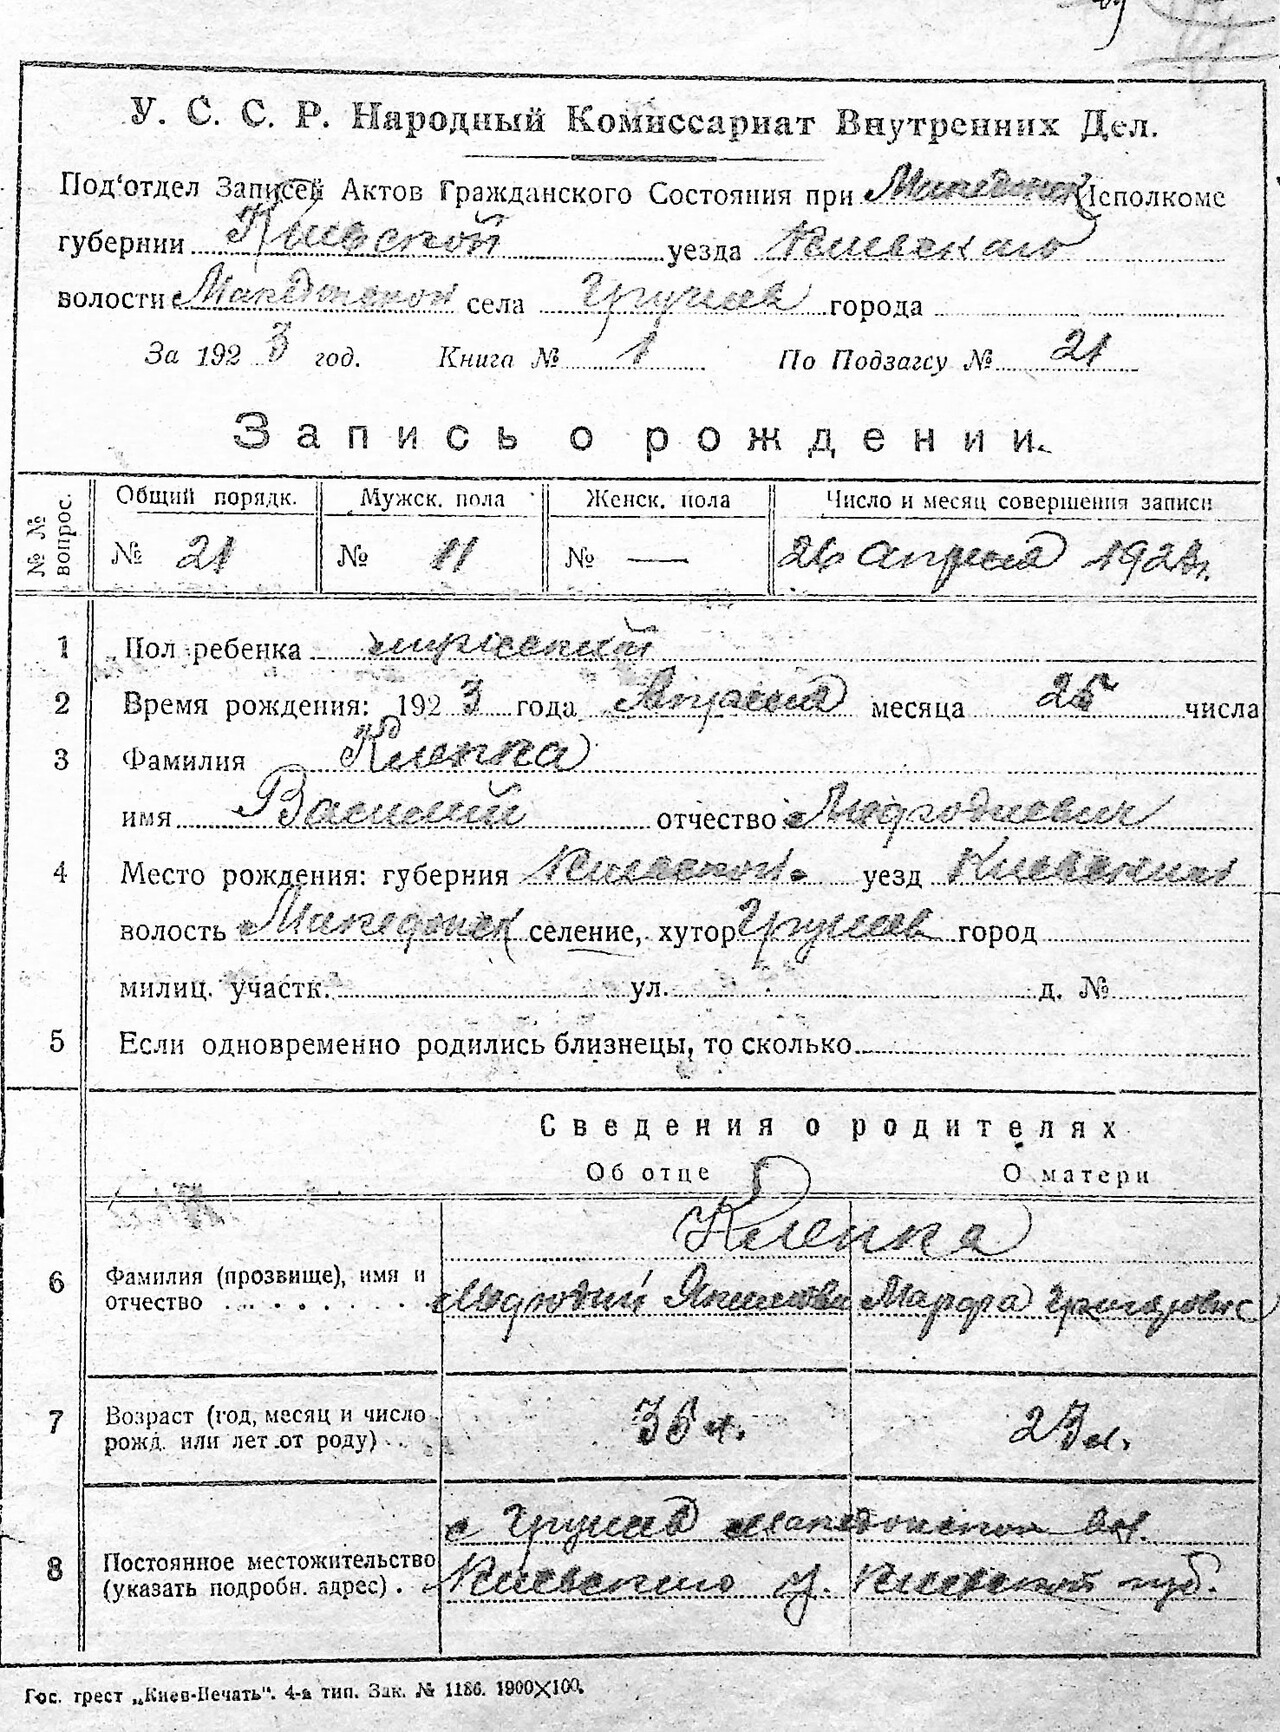 У. С. С. Р. Народный Комиссариат Внутренних Дел.
Под‘отдел Записей Актов Гражданского Состояния при Македонск Исполкоме
губернии Киевской уезда Киевскаго
волости Македонской села Грушев города
За 1923 год. Книга № 1 По Подзагсу № 21
Запись о рождении.
№ № вопрос.
Общий порядк. Мужск. пола Женск. пола Число и месяц совершения записи
№ 21 № 11 № — 26 апреля 1923 г.
1 Пол ребенка мужеский
2 Время рождения: 1923 года Апреля месяца 25 числа
3 Фамилия Клепка
имя Василий отчество
4 Место рождения: губерния Киевской уезд Киевский
волость Македонск селение, хутор Грушев город
милиц. участк. ул. д. №
5 Если одновременно родились близнецы, то сколько
Сведения о родителях
Об отце О матери
Клепка
6 Фамилия (прозвище), имя и
отчество Марфа
7 Возраст (год, месяц и число
рожд. или лет от роду) 36 л. 23 л.
с Грушев Македонской вол.
8 Постоянное местожительство
(указать подробн. адрес) Киевскаго у. Киевской губ.
Гос. трест „Киев-Печать". 4-я тип. Зак. № 1186. 1900×100.